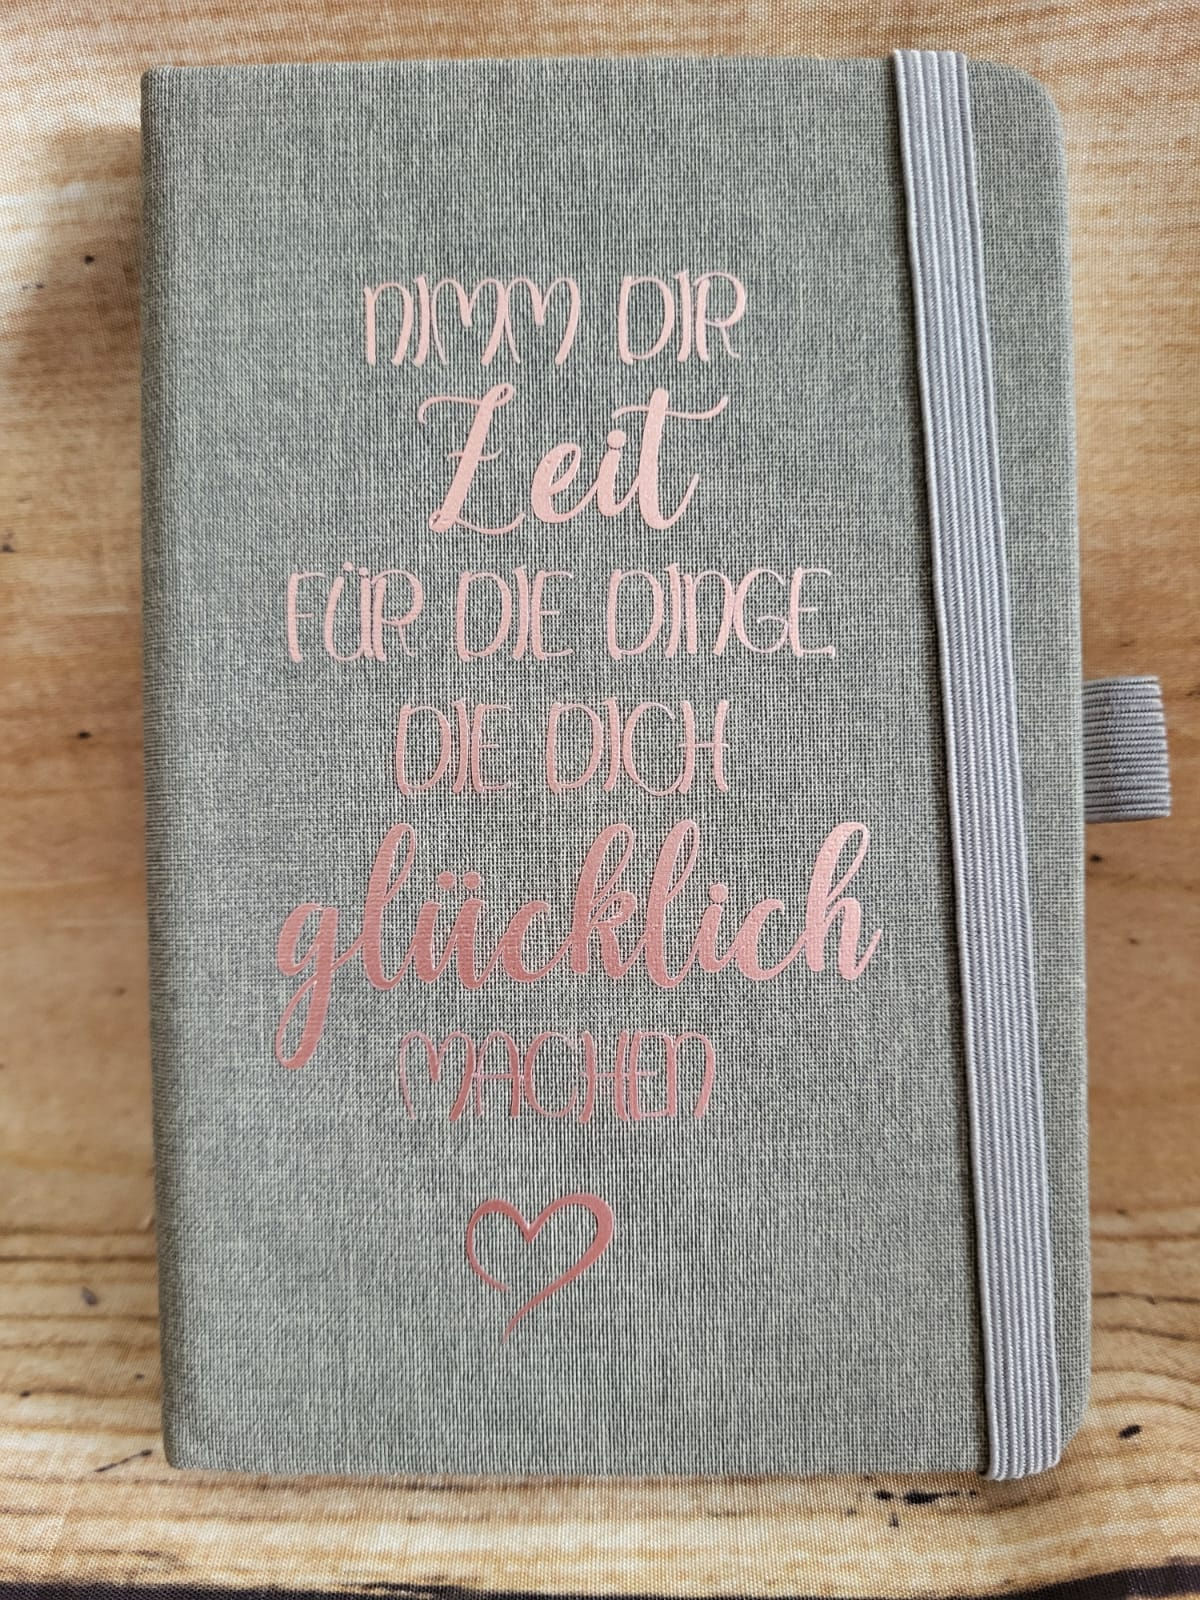 NIMM DIR
Zeit
FÜR DIE DINGE
DIE DICH
glücklich
MACHEN